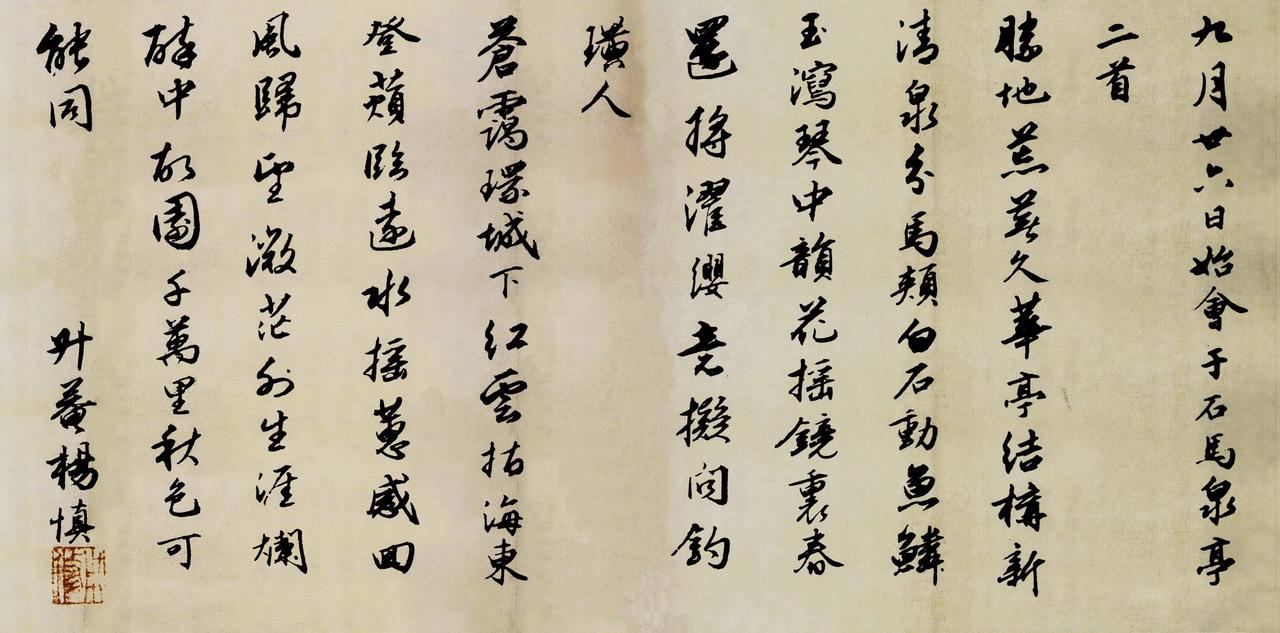 九月廿六日始會于石馬泉亭
二首
勝地荒蕪久華亭結構新
清泉分馬頰白石動魚鱗
玉瀉琴中韻花搖鏡裏春
還將濯纓意擬問釣
璜人
蒼靄環城下紅雲拈海東
登蘋臨遠水搖蕙感回
風歸望微茫外生涯爛
醉中故園千萬里秋色可
能同
升菴楊慎